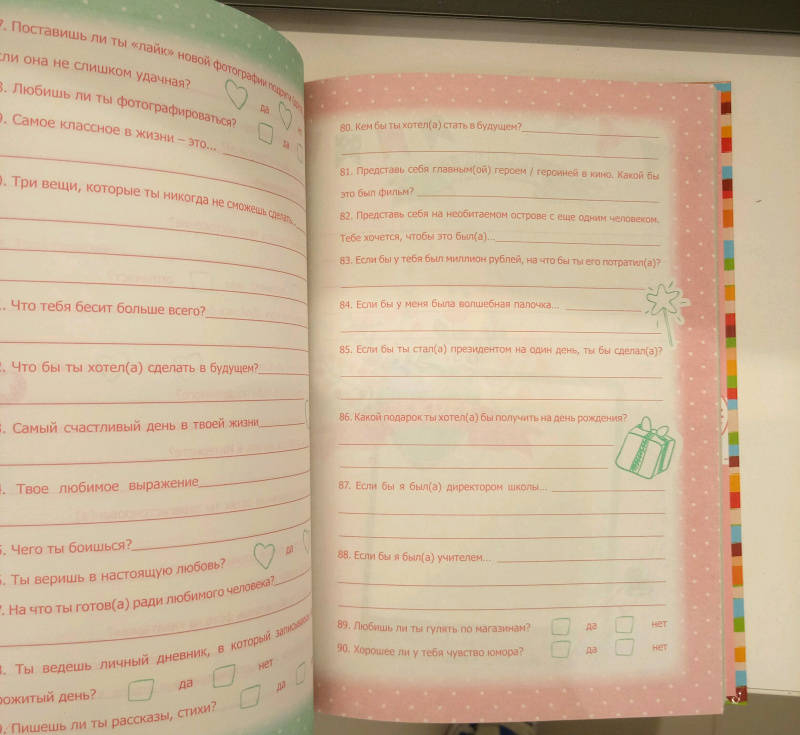 7. Поставишь ли ты «лайк» новой фотографии подруги
если она не слишком удачная?
да
8. Любишь ли ты фотографироваться?
да
9. Самое классное в жизни – это...
0. Три вещи, которые ты никогда не сможешь сделать
. Что тебя бесит больше всего?
2. Что бы ты хотел(а) сделать в будущем?
3. Самый счастливый день в твоей жизни
4. Твое любимое выражение
5. Чего ты боишься?
6. Ты веришь в настоящую любовь? да
7. На что ты готов(а) ради любимого человека?
8. Ты ведешь личный дневник, в который
прожитый день? да нет
9. Пишешь ли ты рассказы, стихи? да
80. Кем бы ты хотел(а) стать в будущем?
81. Представь себя главным(ой) героем / героиней в кино. Какой бы
это был фильм?
82. Представь себя на необитаемом острове с еще одним человеком.
Тебе хочется, чтобы это был(а)...
83. Если бы у тебя был миллион рублей, на что бы ты его потратил(а)?
84. Если бы у меня была волшебная палочка...
85. Если бы ты стал(а) президентом на один день, ты бы сделал(а)?
86. Какой подарок ты хотел(а) бы получить на день рождения?
87. Если бы я был(а) директором школы...
88. Если бы я был(а) учителем...
89. Любишь ли ты гулять по магазинам? да нет
90. Хорошее ли у тебя чувство юмора? да нет